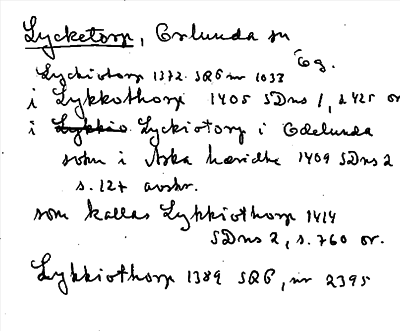 Lycketorp, Orlunda sn
Ög.
Lyckiotorp 1372 SRP nr 1033
i Lykkothorp 1405 SDns 1, s 425 or
i Lykkio Lyckiotorp i Odelunda
sokn i Aska hæridhe 1409 SDns 2
s. 127 avskr.
som kallas Lykkiothorp 1414
SDns 2, s. 760 or.
Lykkiothorp 1389 SRP, nr 2395